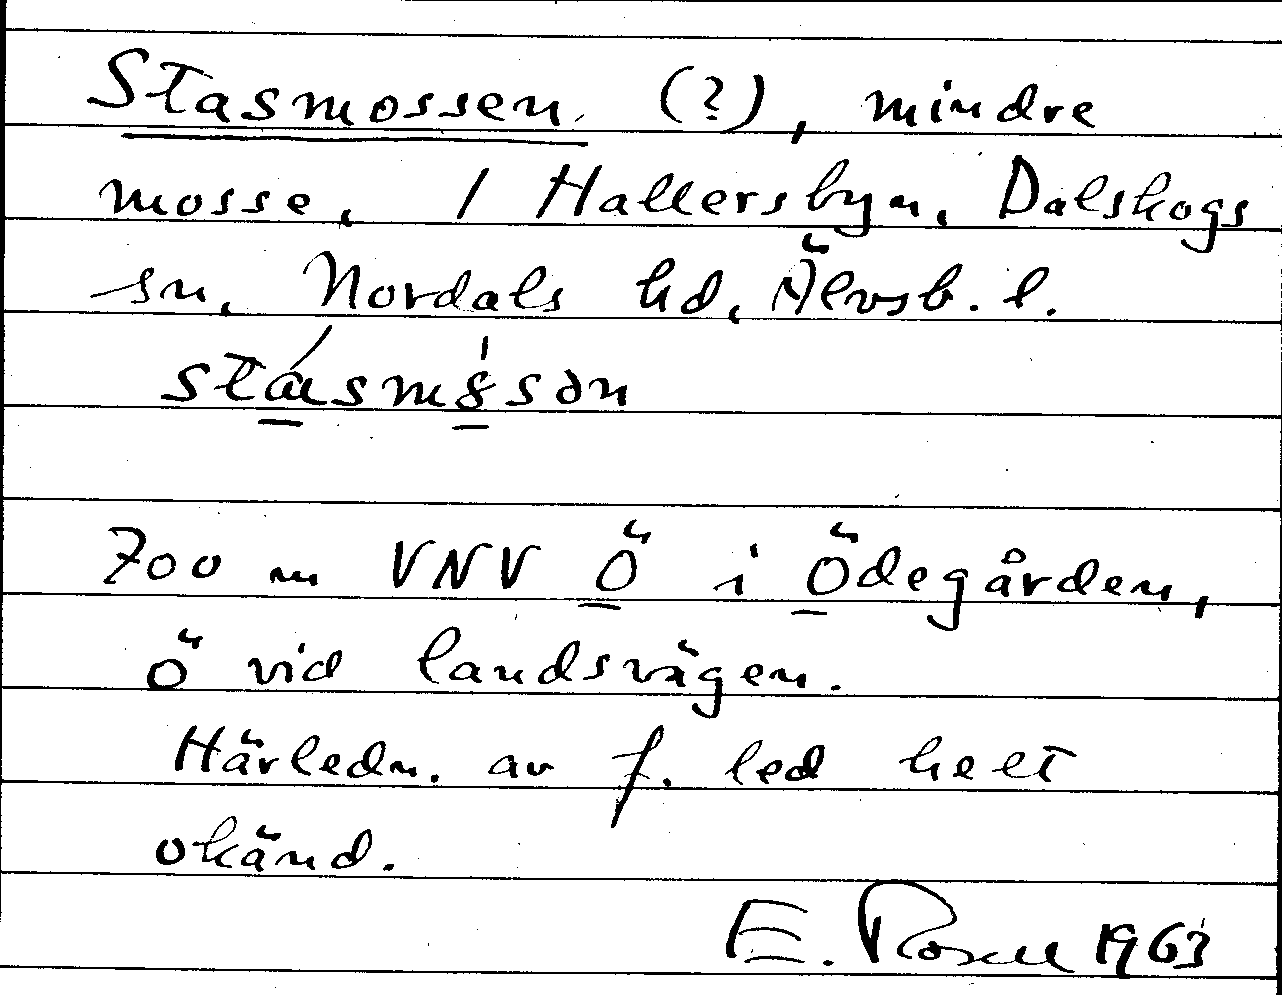 Stasmossen (?), mindre
mosse, / Hallersbyn, Dalskogs
sn, Nordals hd, Älvsb. l.
stásm8sən
700 m VNV Ö i Ödegården,
Ö vid landsvägen.
Härledn. av f. led helt
okänd.
E. Rosell 1963